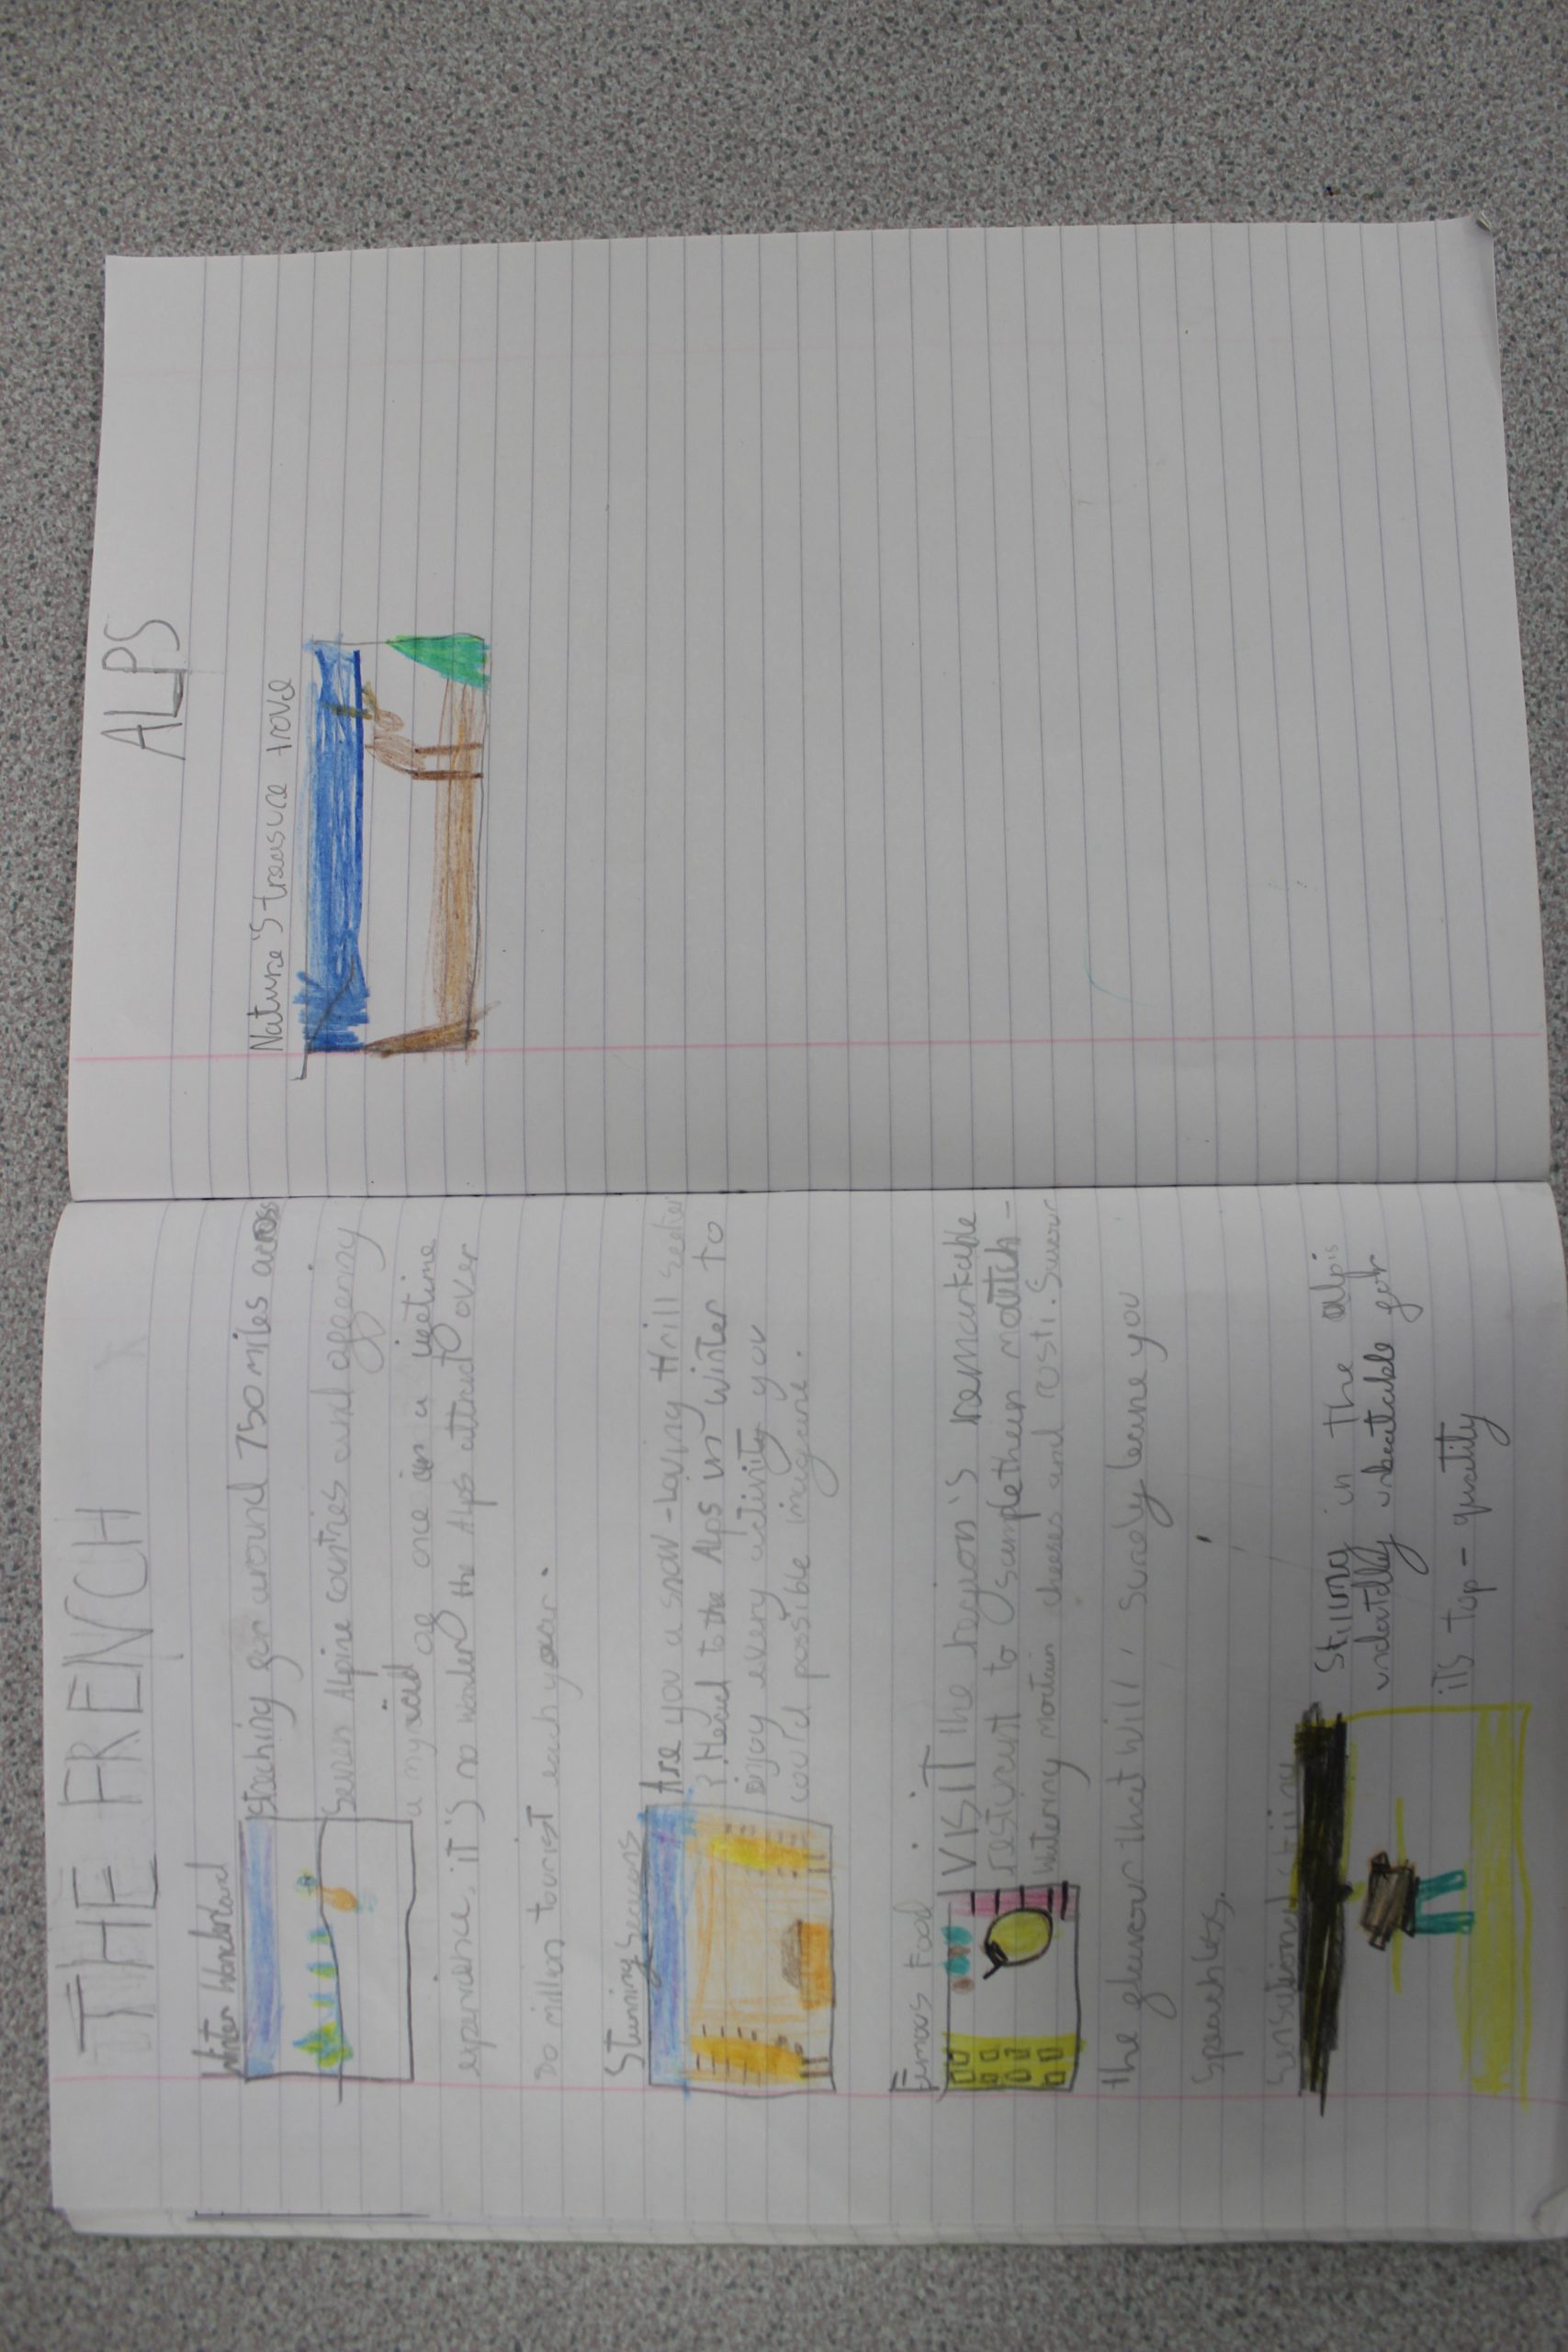 THE FRENCH ALPS
Winter Wonderland
stretching for around 750 miles across
Seven Alpine countries and offering
a myriad of once in a lifetime
experience, it's no wonder the Alps attract over
million tourist each year.
Stunning Secrets
Are you a snow-loving thrill seeker
? Head to the Alps in winter to
enjoy every activity you
could possible imagine.
Famous Food
VISIT the region's remarkable
to sample their moutth-
watering cheeses and rosti. Savour
the flavour that will surely leave you
Speachless.
Sensational
in the alps
its top-quality
Nature's treasure trove